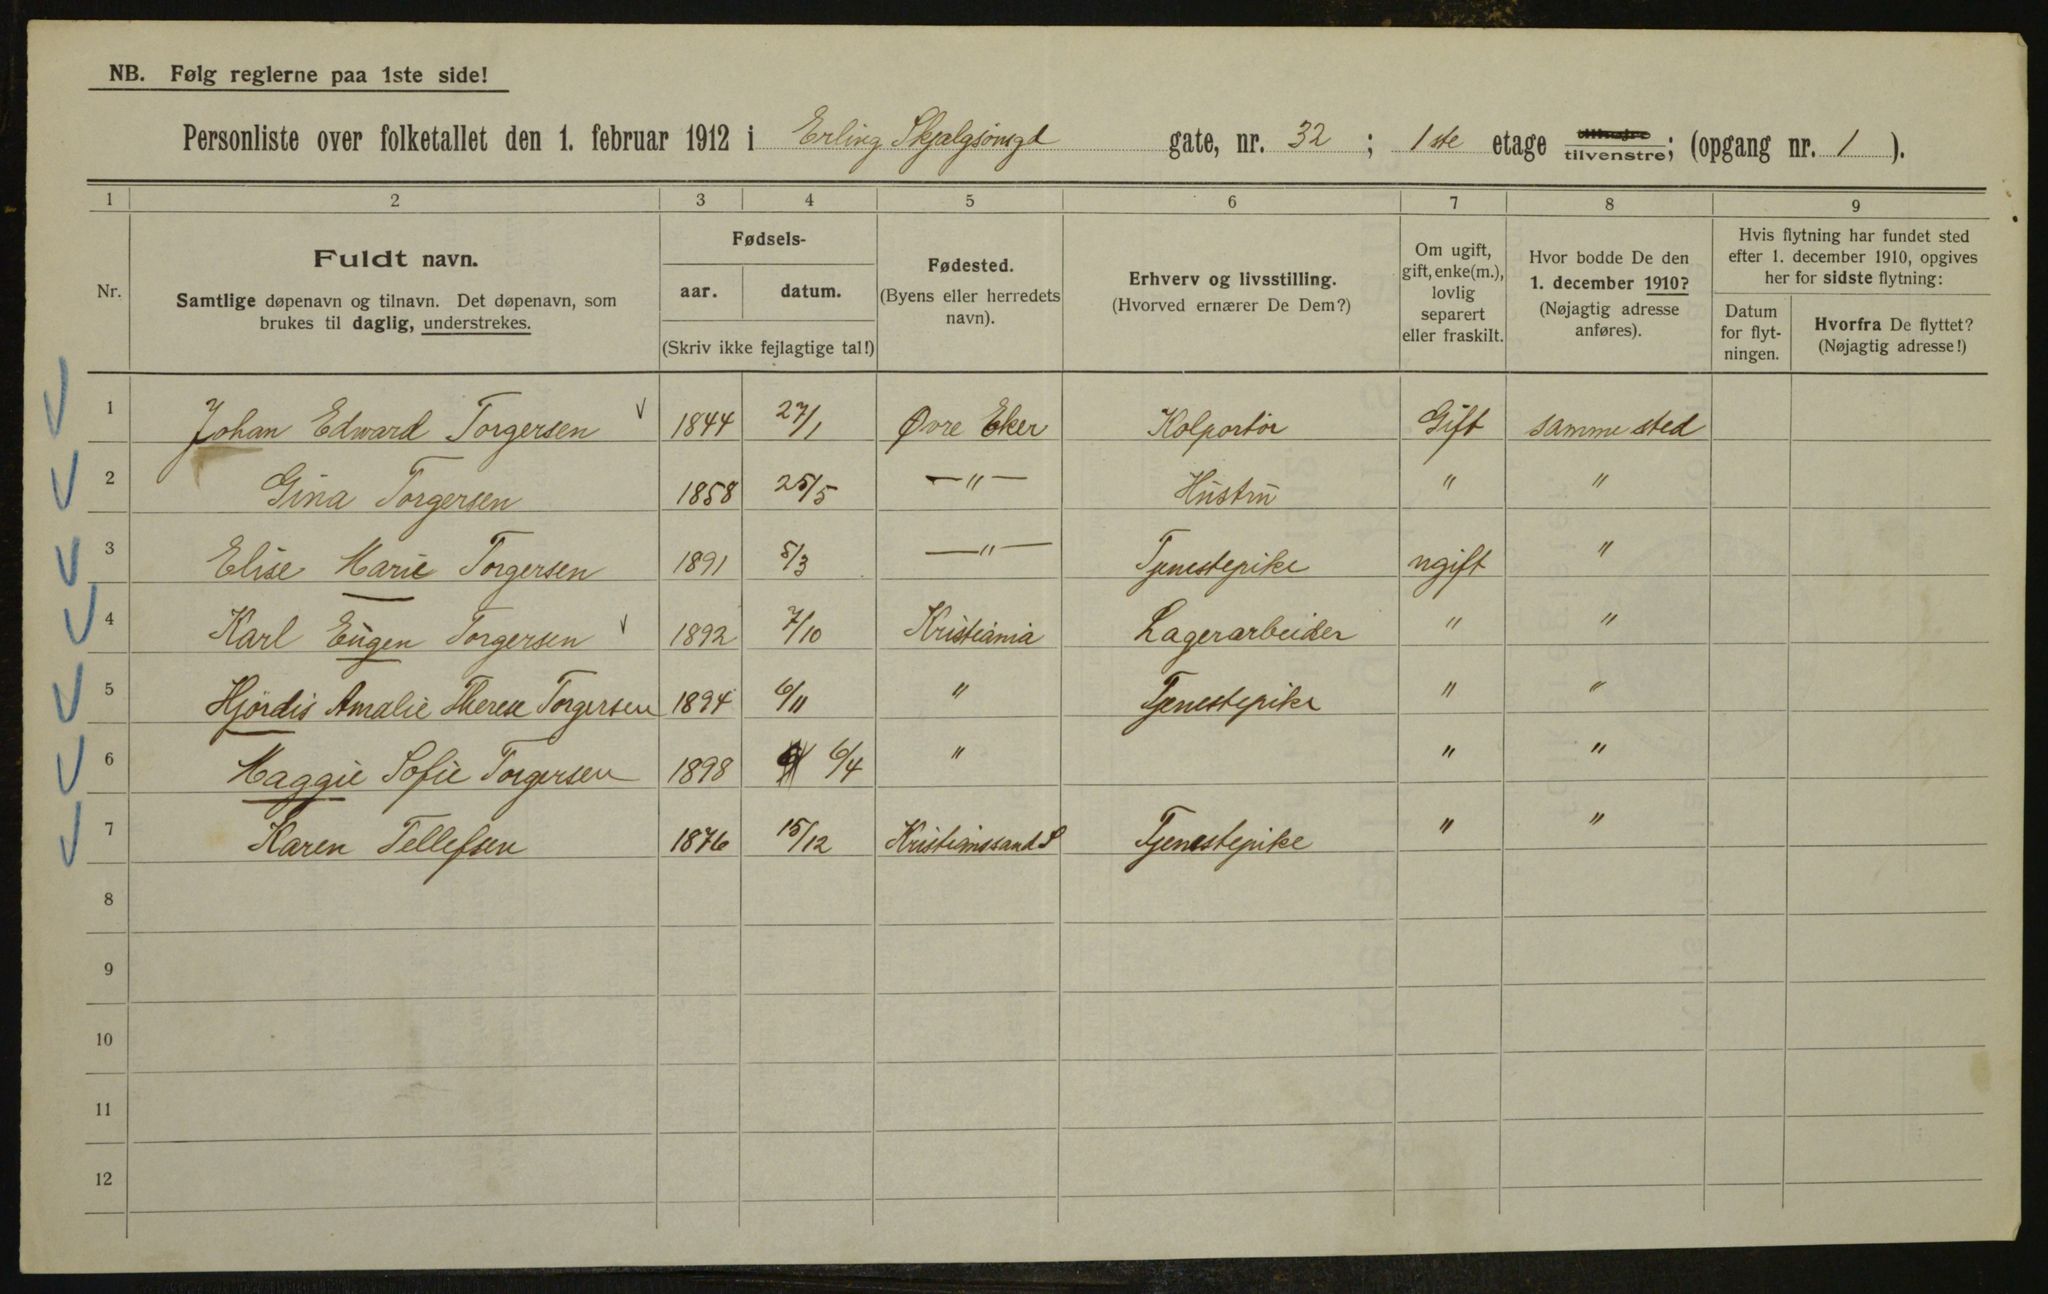 NB. Følg reglerne paa 1ste side!
Personliste over folketallet den 1. februar 1912 i Erling Skjalgsönsgd gate, nr. 32 ; 1ste etage tilvenstre; (opgang nr. 1 ).
1 2 3 4 5 6 7 8 9
Nr.
Fuldt navn.
Samtlige døpenavn og tilnavn. Det døpenavn, som
brukes til daglig, understrekes.
Fødsels-
aar. datum.
(Skriv ikke fejlagtige tal!)
Fødested.
(Byens eller herredets
navn).
Erhverv og livsstilling.
(Hvorved ernærer De Dem?)
Om ugift,
gift, enke(m.),
lovlig
separert
eller fraskilt.
Hvor bodde De den
1. december 1910?
(Nøjagtig adresse
anføres).
Hvis flytning har fundet sted
efter 1. december 1910, opgives
her for sidste flytning:
Datum
for flyt-
ningen.
Hvorfra De flyttet?
(Nøjagtig adresse!)
1 Johan Edward Torgersen 1844 27/1 Øvre Eker Kolportör Gift samme sted
2 Gina Torgersen 1858 25/5 —"— Hustru " "
3 Elise Marie Torgersen 1891 5/3 —"— Tjenestepike ugift "
4 Karl Eugen Torgersen 1892 7/10 Kristiania Lagerarbeider " "
5 Hjördis Amalie Therese Torgersen 1894 6/11 " Tjenestepike " "
6 Maggie Sofie Torgersen 1898 6/4 " " "
7 Karen Tellefsen 1876 15/12 Kristianssand S Tjenestepike " "
8
9
10
11
12